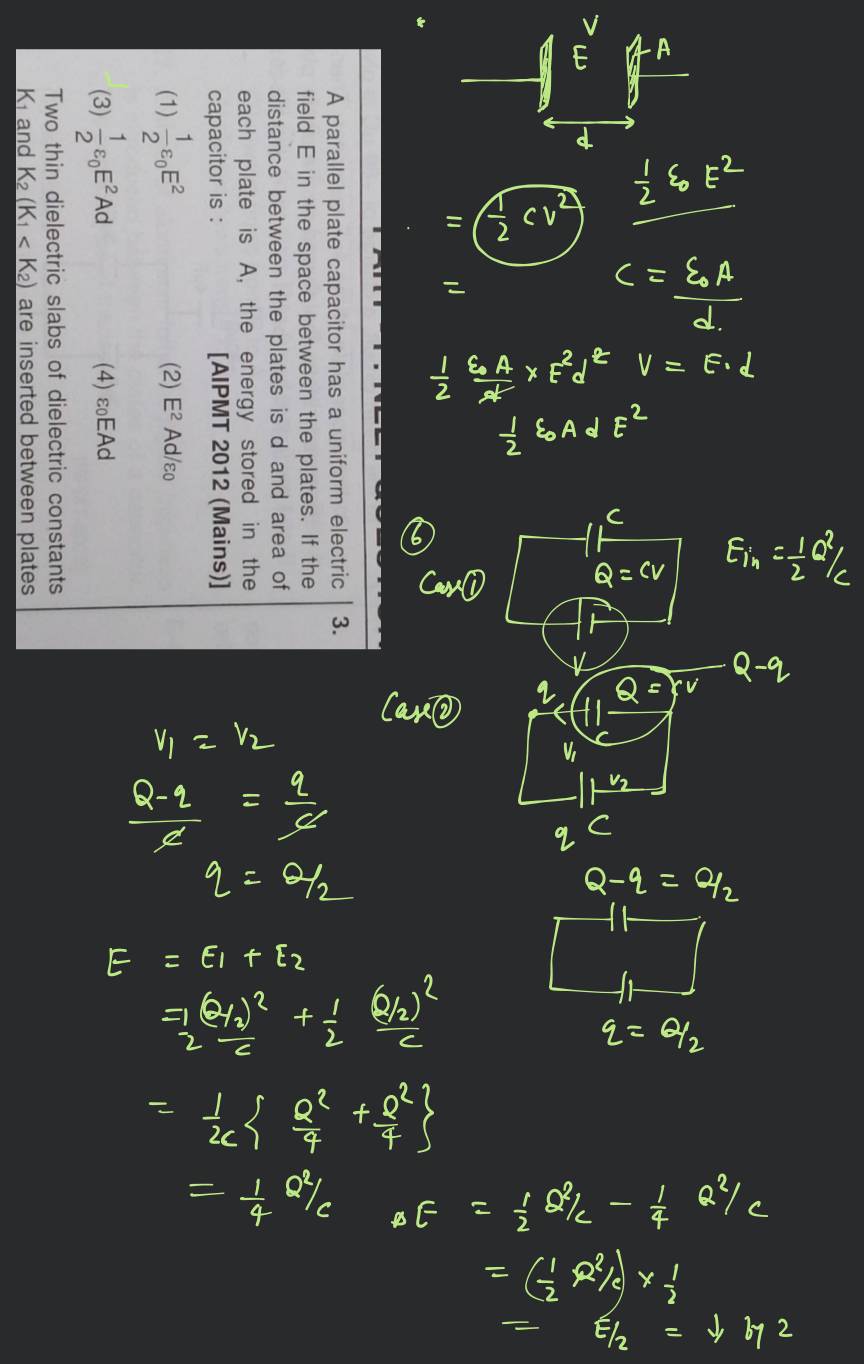 3. A parallel plate capacitor has a uniform electric
field E in the space between the plates. If the
distance between the plates is d and area of
each plate is A, the energy stored in the
capacitor is : [AIPMT 2012 (Mains)]
(1) 1/2 ε₀E² (2) E² Ad/ε₀
(3) 1/2 ε₀E²Ad (4) ε₀EAd
Two thin dielectric slabs of dielectric constants
K₁ and K₂ (K₁ < K₂) are inserted between plates
V
E A
d
1/2 ε₀ E²
= 1/2 CV²
= C = ε₀A/d.
1/2 ε₀A/d × E²d² V = E·d
1/2 ε₀ A d E²
⑥ C
Case ① Q = CV E in = 1/2 Q²/C
V
Case ② q Q = CV Q-q
C
V₁
V₂
q C
V₁ = V₂
Q-q/C = q/C
q = Q/2
Q-q = Q/2
q = Q/2
E = E₁ + E₂
= 1/2 (Q/2)²/C + 1/2 (Q/2)²/C
= 1/2C { Q²/4 + Q²/4 }
= 1/4 Q²/C
ΔE = 1/2 Q²/C - 1/4 Q²/C
= (1/2 Q²/C) × 1/2
= E/2 = ↓ by 2